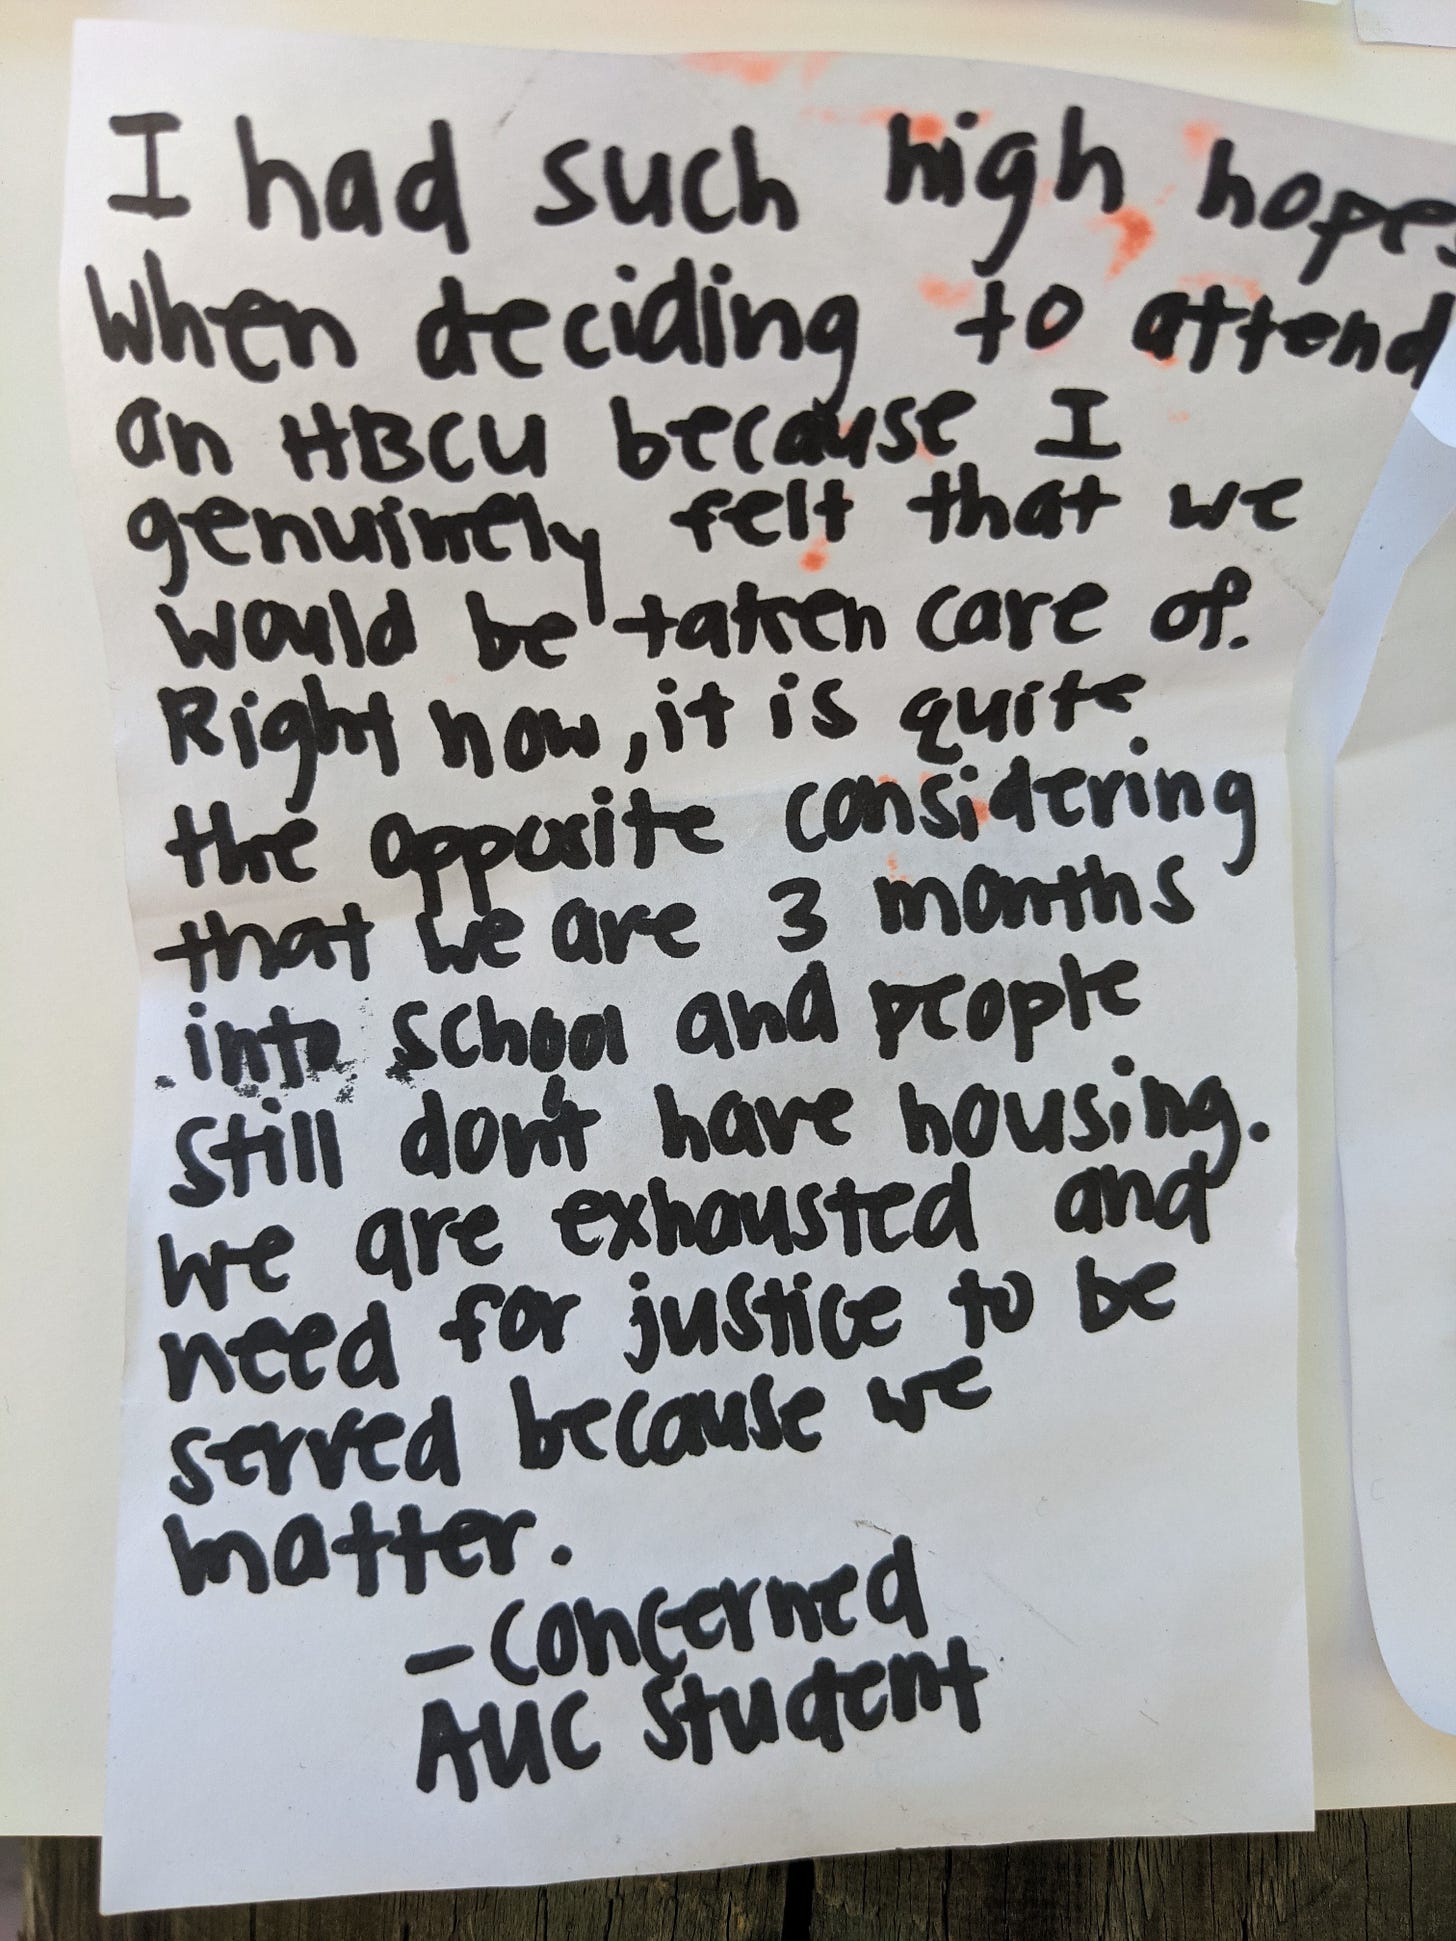 I had such high hopes
when deciding to attend
an HBCU because I
genuinely felt that we
would be taken care of.
Right now, it is quite
the opposite considering
that we are 3 months
into school and people
still don't have housing.
we are exhausted and
need for justice to be
served because we
matter.
-concerned
AUC student